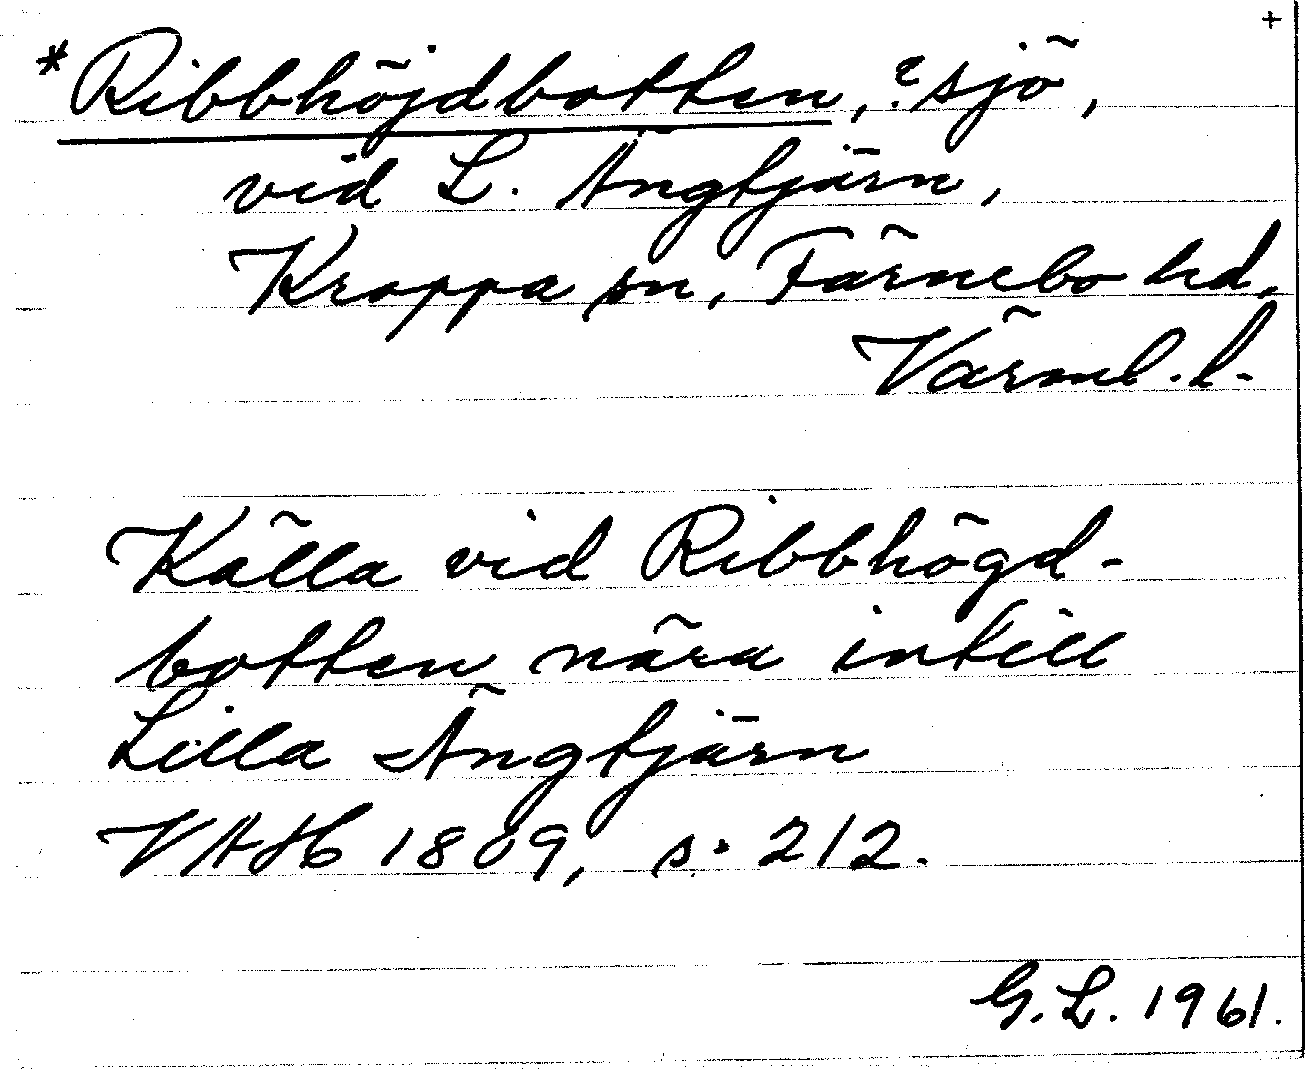 +
*Ribbhöjdbotten, ?sjö,
vid L. Ängtjärn,
Kroppa sn, Färnebo hd,
Värml. l.
Källa vid Ribbhögd-
botten nära intill
Lilla Ängtjärn
VAH 1809, s. 212.
G. L. 1961.